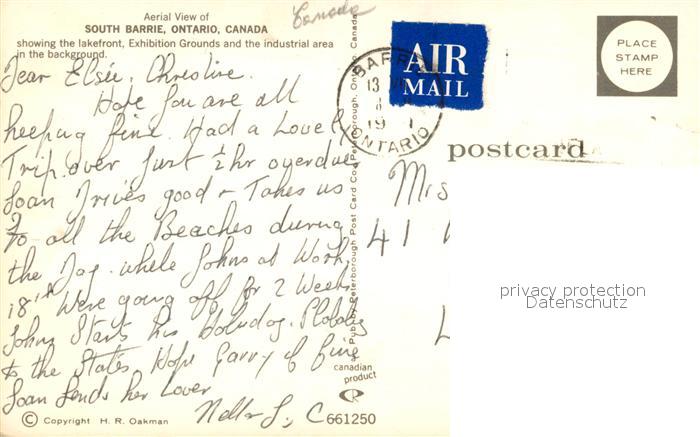 Aerial View of
SOUTH BARRIE, ONTARIO, CANADA
showing the lakefront, Exhibition Grounds and the industrial area
in the background.
Canada
Dear Elsie, Christine.
Hope you are all
keeping fine. Had a Lovely
Trip over just ½ hr overdue
Joan Drives good & Takes us
to all the Beaches during
the Day. while Johns at Work.
18th Were going off for 2 Weeks
Johns Starts his
to the States. Hope Garry is fine
Joan Sends her Love
C661250
© Copyright H. R. Oakman
canadian
product
BARRIE
13
19
ONTARIO
AIR
MAIL
PLACE
STAMP
HERE
postcard
41
privacy protection
Datenschutz